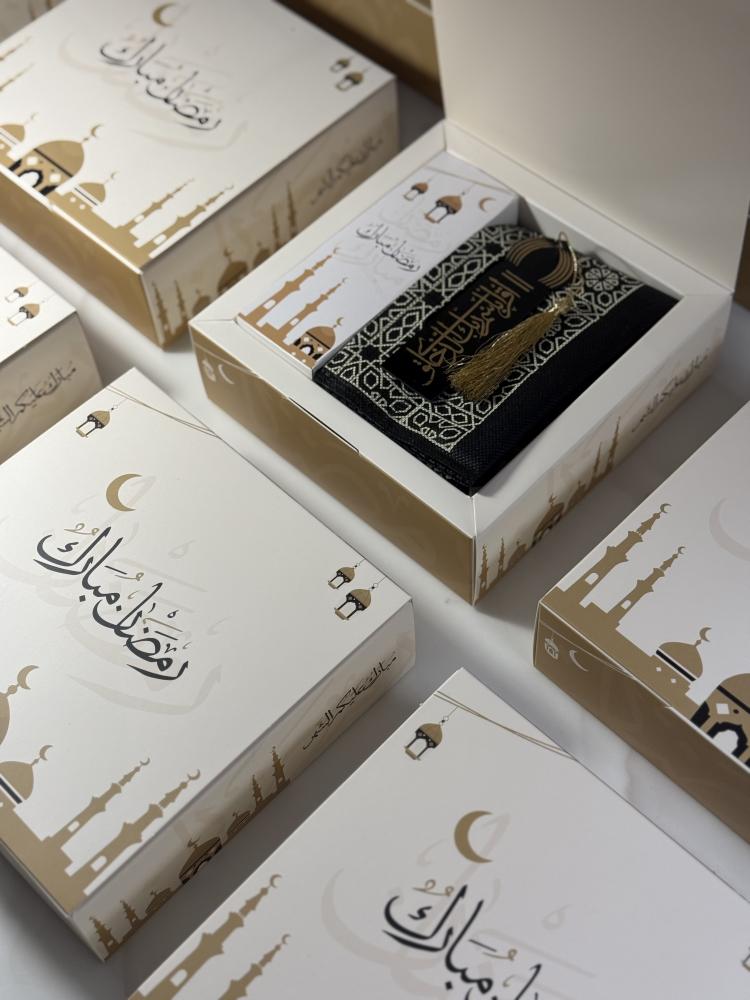 رمضان مبارك
مبارك عليكم الشهر
رمضان مبارك
مبارك عليكم الشهر
مبارك عليكم الشهر
رمضان مبارك
مبارك عليكم الشهر
مبارك